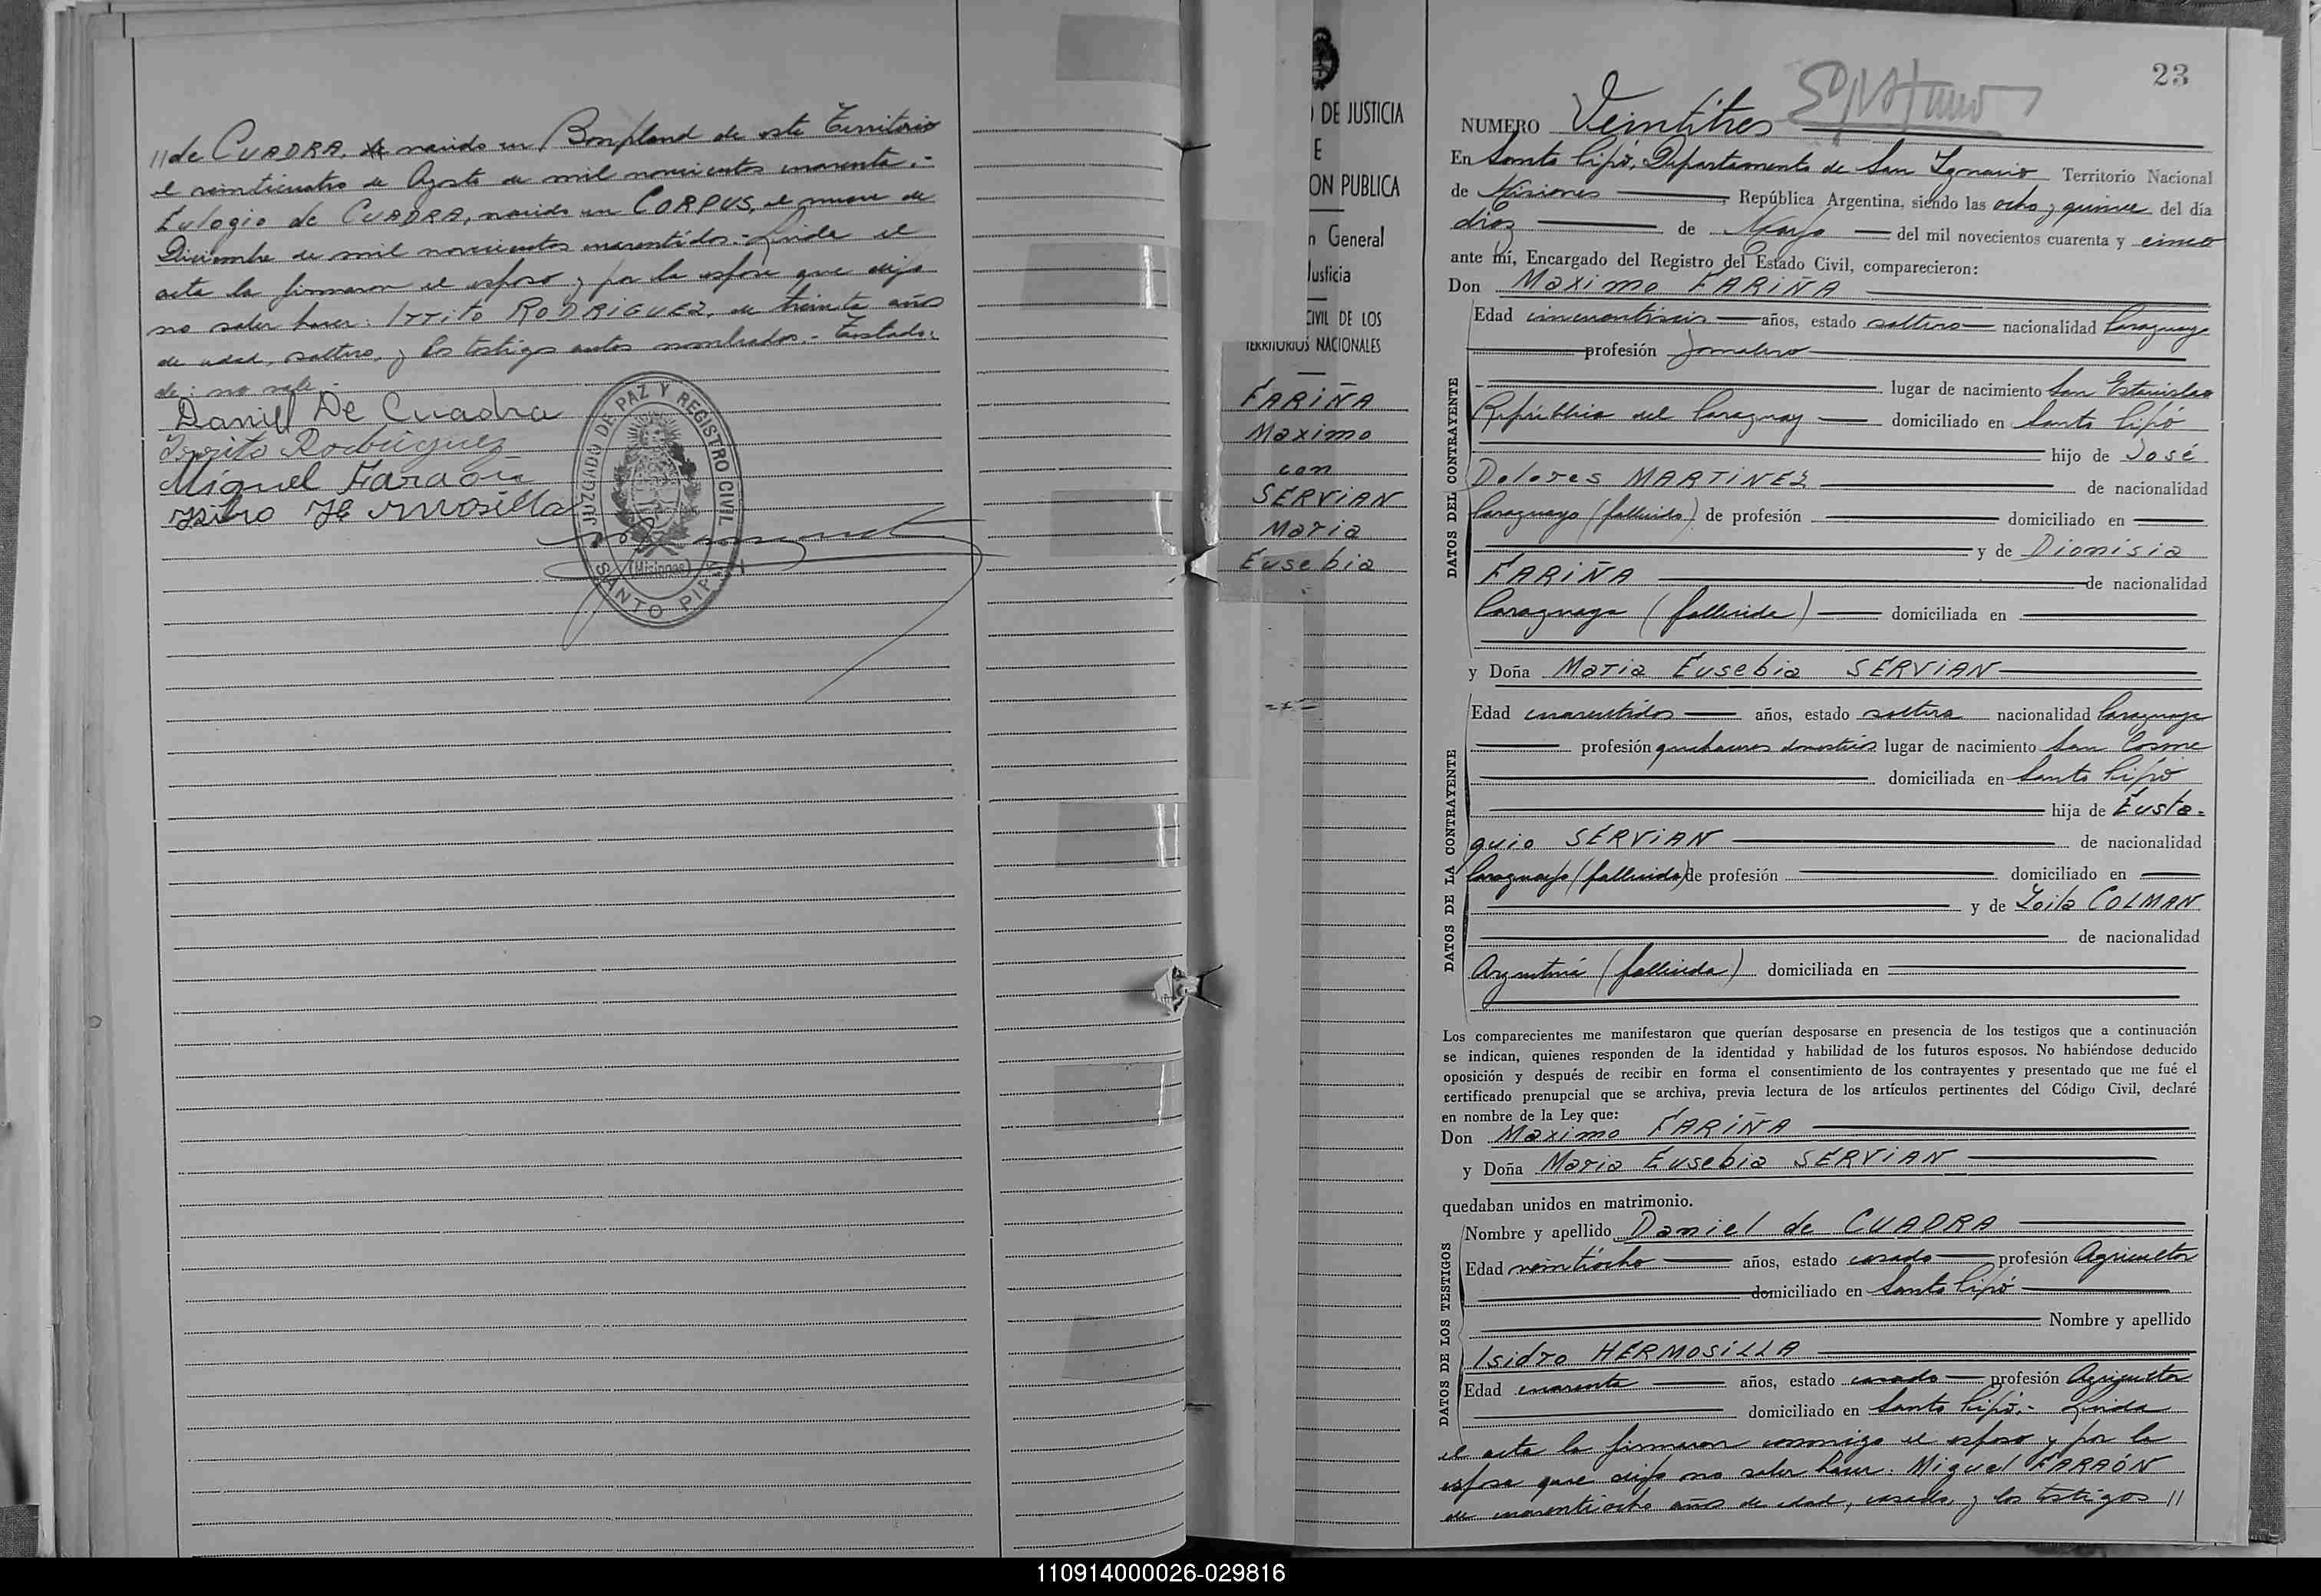 //de CUADRA, de nacido en Bonpland de este Territorio
el veinticuatro de Agosto de mil novecientos cuarenta.-
Eulogio de CUADRA, nacido en CORPUS, el nueve de
Diciembre de mil novecientos cuarentidos.- Leida el
acta la firmaron el esposo y por la esposa que dijo
no saber hacer: Irrito RODRIGUEZ, de treinta años
de edad, soltero, y los testigos antes nombrados.- Testado:
de: no vale.-
Daniel De Cuadra
Irrito Rodriguez
Miguel Faraón
Isidro Hermosilla
JUZGADO DE PAZ Y REGISTRO CIVIL
(Misiones)
SANTO PIPÓ
DE JUSTICIA
E
ON PUBLICA
n General
Justicia
CIVIL DE LOS
TERRITORIOS NACIONALES
FARIÑA
Maximo
con
SERVIAN
Maria
Eusebia
23
NUMERO Veintitres
En Santo Pipó, Departamento de San Ignacio Territorio Nacional
de Misiones, República Argentina, siendo las ocho y quince del día
diez de Mayo del mil novecientos cuarenta y cinco
ante mí, Encargado del Registro del Estado Civil, comparecieron:
Don Maximo FARIÑA
DATOS DEL CONTRAYENTE
Edad cincuentiseis años, estado soltero nacionalidad Paraguaya
profesión Jornalero
lugar de nacimiento San Estanislao
República del Paraguay domiciliado en Santo Pipó
hijo de José
Dolores MARTINEZ de nacionalidad
Paraguayo (fallecido) de profesión domiciliado en
y de Dionisia
FARIÑA de nacionalidad
Paraguaya (fallecida) domiciliada en
y Doña Maria Eusebia SERVIAN
DATOS DE LA CONTRAYENTE
Edad cuarentidos años, estado soltera nacionalidad Paraguaya
profesión quehaceres domesticos lugar de nacimiento San Cosme
domiciliada en Santo Pipó
hija de Eusta=
quio SERVIAN de nacionalidad
Paraguayo (fallecido) de profesión domiciliado en
y de Zoila COLMAN
de nacionalidad
Argentina (fallecida) domiciliada en
Los comparecientes me manifestaron que querían desposarse en presencia de los testigos que a continuación
se indican, quienes responden de la identidad y habilidad de los futuros esposos. No habiéndose deducido
oposición y después de recibir en forma el consentimiento de los contrayentes y presentado que me fué el
certificado prenupcial que se archiva, previa lectura de los artículos pertinentes del Código Civil, declaré
en nombre de la Ley que:
Don Maximo FARIÑA
y Doña Maria Eusebia SERVIAN
quedaban unidos en matrimonio.
DATOS DE LOS TESTIGOS
Nombre y apellido Daniel de CUADRA
Edad veintiocho años, estado casado profesión Agricultor
domiciliado en Santo Pipó
Nombre y apellido
Isidro HERMOSILLA
Edad cuarenta años, estado casado profesión Agricultor
domiciliado en Santo Pipó.- Leida
el acta la firmaron conmigo el esposo y por la
esposa que dijo no saber hacer: Miguel FARAÓN
de cuarentiocho años de edad, casado, y los testigos //
110914000026-029816